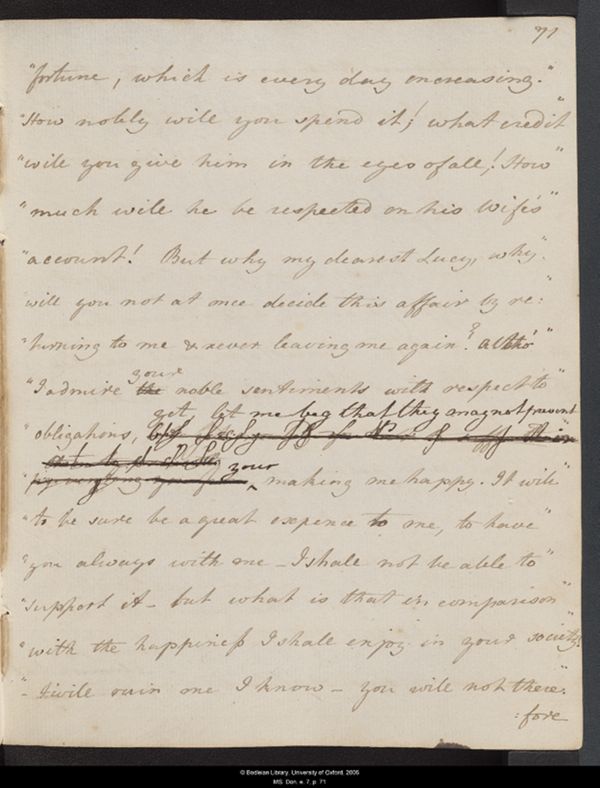 71
"fortune, which is every day encreasing."
"How nobly will you spend it; what credit"
"will you give him in the eyes of all! How"
"much will he be respected on his Wife's"
"account! But why my dearest Lucy, why"
will you not at once decide this affair by re:"
"turning to me & never leaving me again? Altho'"
your
"I admire the noble sentiments with respect to"
yet, let me beg that they may not prevent
"obligations,
your
making me happy. It will"
"to be sure be a great expence to me, to have"
"you always with me - I shall not be able to"
"support it - but what is that in comparison"
"with the happiness I shall enjoy in your society?
"- 'twill ruin me I know - you will not there:"
:fore
© Bodleian Library, University of Oxford, 2005
MS. Don. e. 7, p. 71